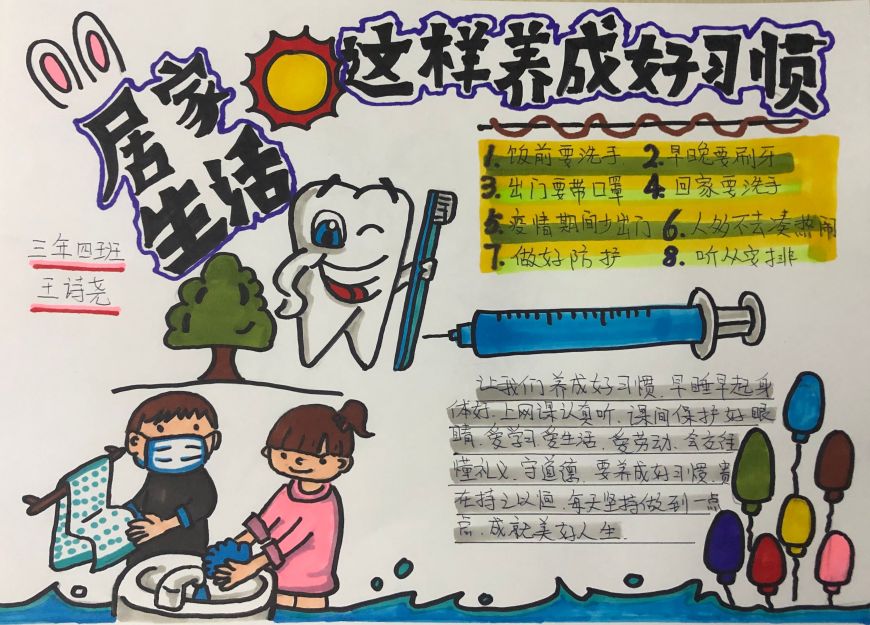 居家生活
这样养成好习惯
1. 饭前要洗手 2. 早晚要刷牙
3. 出门要带口罩 4. 回家要洗手
5. 疫情期间少出门 6. 人多不去凑热闹
7. 做好防护 8. 听从安排
三年四班
王诗尧
让我们养成好习惯.早睡早起身
体好.上网课认真听.课间保护好眼
睛.爱学习爱生活.爱劳动.会交往
懂礼义.守道德.要养成好习惯.贵
在持之以恒.每天坚持做到一点
点.成就美好人生.